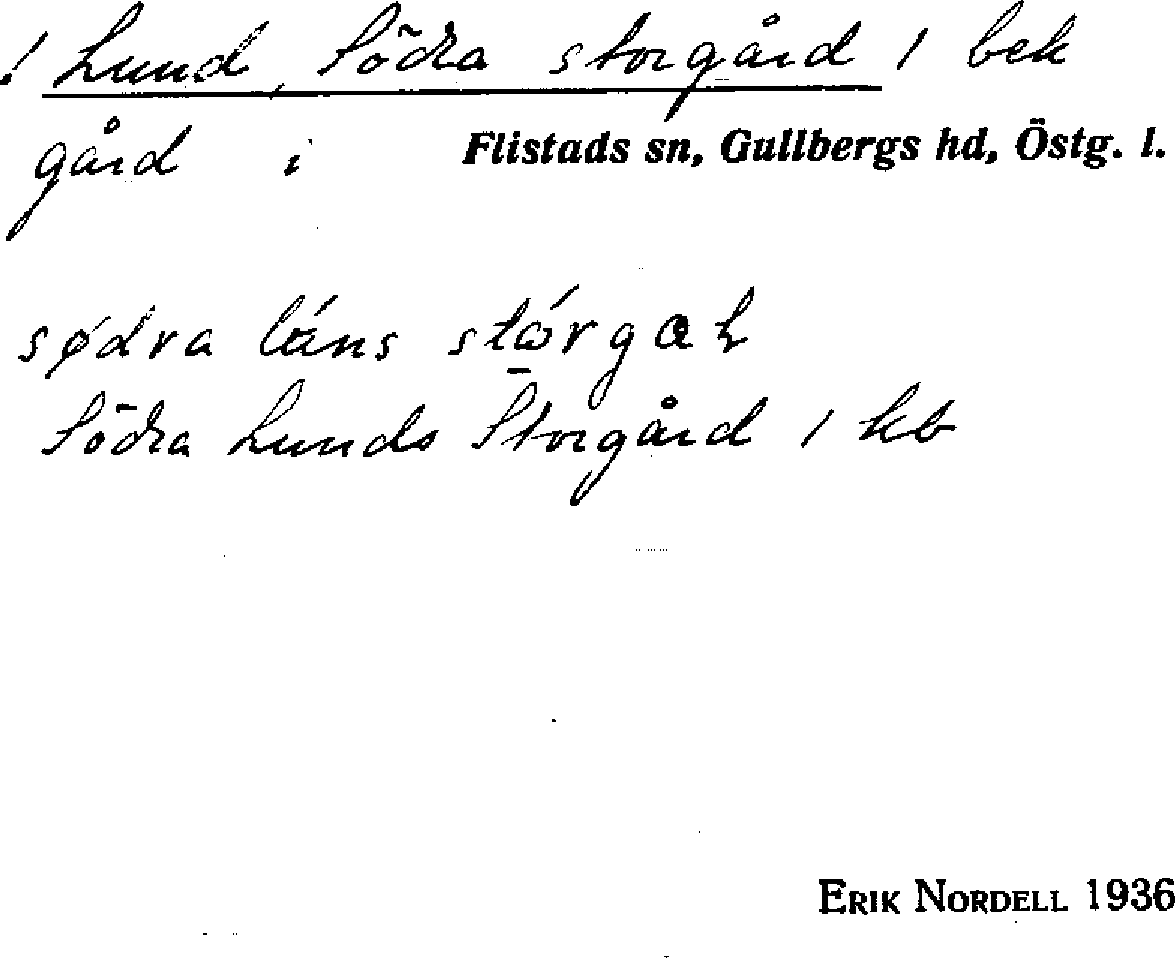 ! Lund, Södra storgård / bek
gård i Flistads sn, Gullbergs hd, Östg. l.
södra
Södra Lunds Storgård / kb
ERIK NORDELL 1936